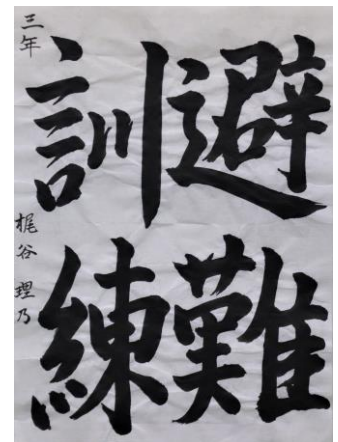 避難
訓練
三年 梶谷 理乃